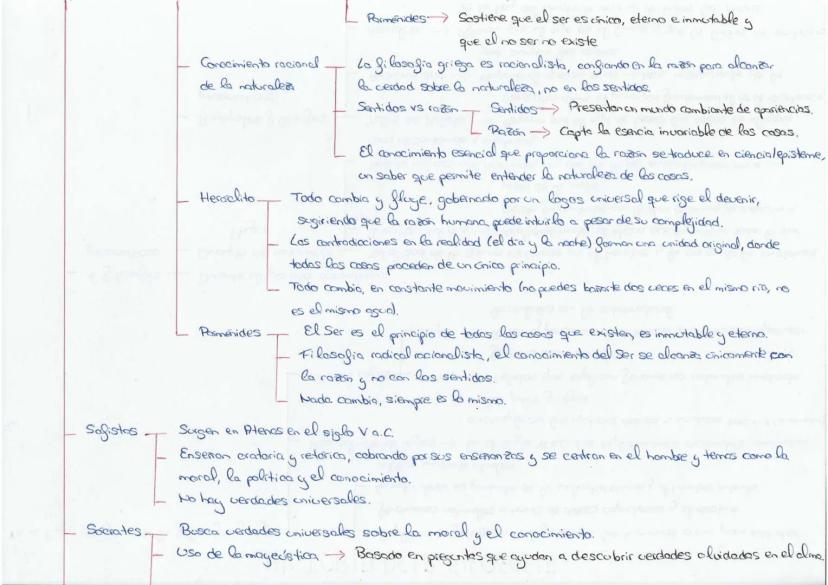 Parménides → Sostiene que el ser es único, eterno e inmutable y
que el no ser no existe
Conocimiento racional
de la naturaleza
La filosofía griega es racionalista, confiando en la razón para alcanzar
la verdad sobre la naturaleza, no en los sentidos.
Sentidos vs razón
Sentidos → Presentan un mundo cambiante de apariencias.
Razón → Capta la esencia invariable de las cosas.
El conocimiento esencial que proporciona la razón se traduce en ciencia/episteme,
un saber que permite entender la naturaleza de las cosas.
Heráclito
Todo cambia y fluye, gobernado por un logos universal que rige el devenir,
sugiriendo que la razón humana puede intuirlo a pesar de su complejidad.
Las contradicciones en la realidad (el día y la noche) forman una unidad original, donde
todas las cosas proceden de un único principio.
Todo cambia, en constante movimiento (no puedes bañarte dos veces en el mismo río, no
es el mismo agua).
Parménides
El Ser es el principio de todas las cosas que existen, es inmutable y eterno.
Filosofía radical racionalista, el conocimiento del Ser se alcanza únicamente con
la razón y no con los sentidos.
Nada cambia, siempre es lo mismo.
Sofistas
Surgen en Atenas en el siglo V a.C.
Enseñan oratoria y retórica, cobrando por sus enseñanzas y se centran en el hombre y temas como la
moral, la política y el conocimiento.
No hay verdades universales.
Sócrates
Busca verdades universales sobre la moral y el conocimiento.
Uso de la mayeústica → Basado en preguntas que ayudan a descubrir verdades olvidadas en el alma.